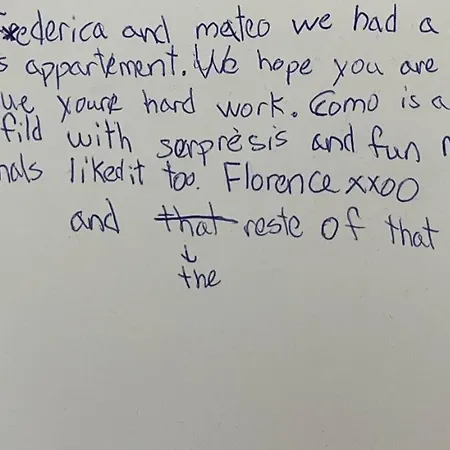 Frederica and mateo we had a
s appartement. We hope you are
ue youre hard work. Como is a
fild with serprèsis and fun
nals likedit too. Florence xxoo
and that reste of that
↓
the